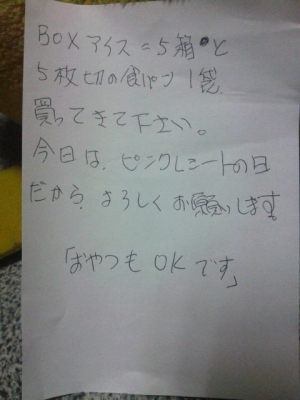 BOXアイス=5箱と
5枚切の食パン1袋
買ってきて下さい。
今日は、ピンクレシートの日
だから、よろしくお願いします。
「おやつもOKです」